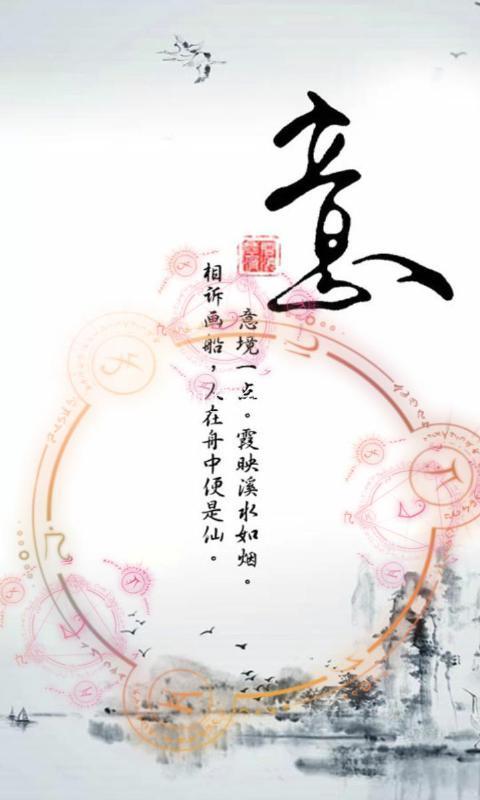 意
意境一点。霞映溪水如烟。
相诉画船，人在舟中便是仙。